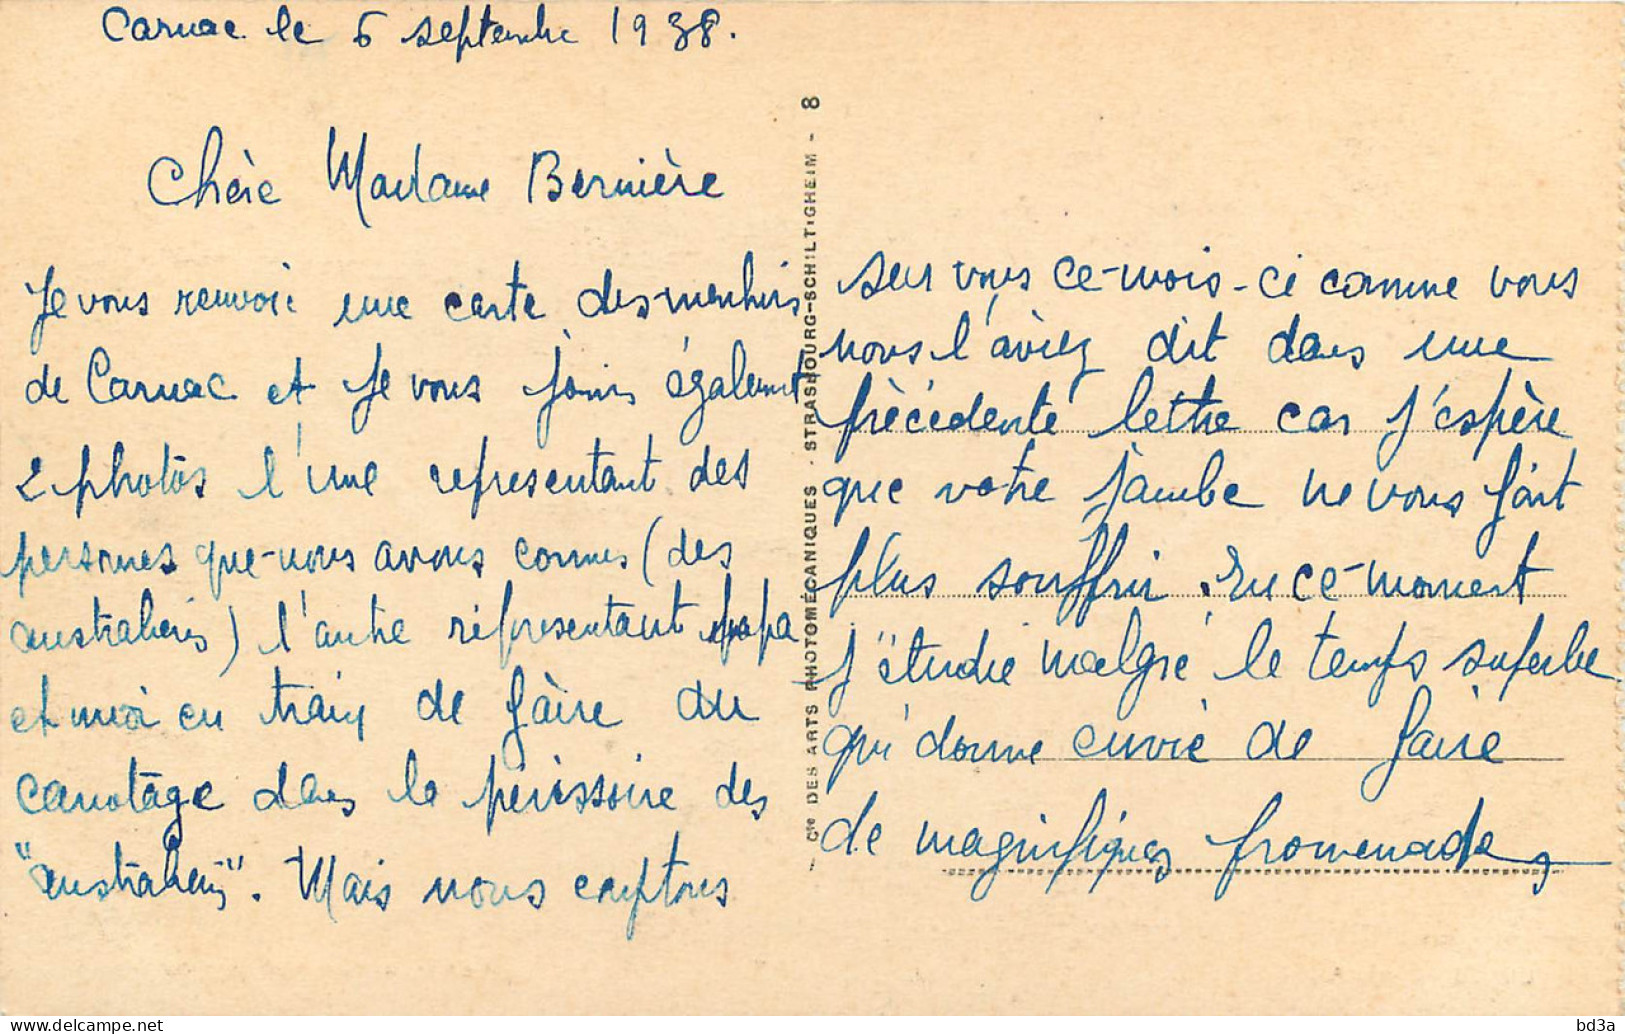 Carnac le 6 septembre 1938.
Chère Madame Bernière
Je vous renvoie une carte des menhirs
de Carnac et je vous joins également
2 photos l'une representant des
personnes que nous avons connues (des
australiens) l'autre représentant papa
et moi en train de faire du
canotage dans la périssoire des
"australiens". Mais nous comptons
sur vous ce mois-ci comme vous
nous l'aviez dit dans une
précédente lettre car j'espère
que votre jambe ne vous fait
plus souffrir. En ce moment
j'étudie malgré le temps superbe
qui donne envie de faire
de magnifiques promenades,
- Cie DES ARTS PHOTOMÉCANIQUES - STRASBOURG-SCHILTIGHEIM - 8
bd3a